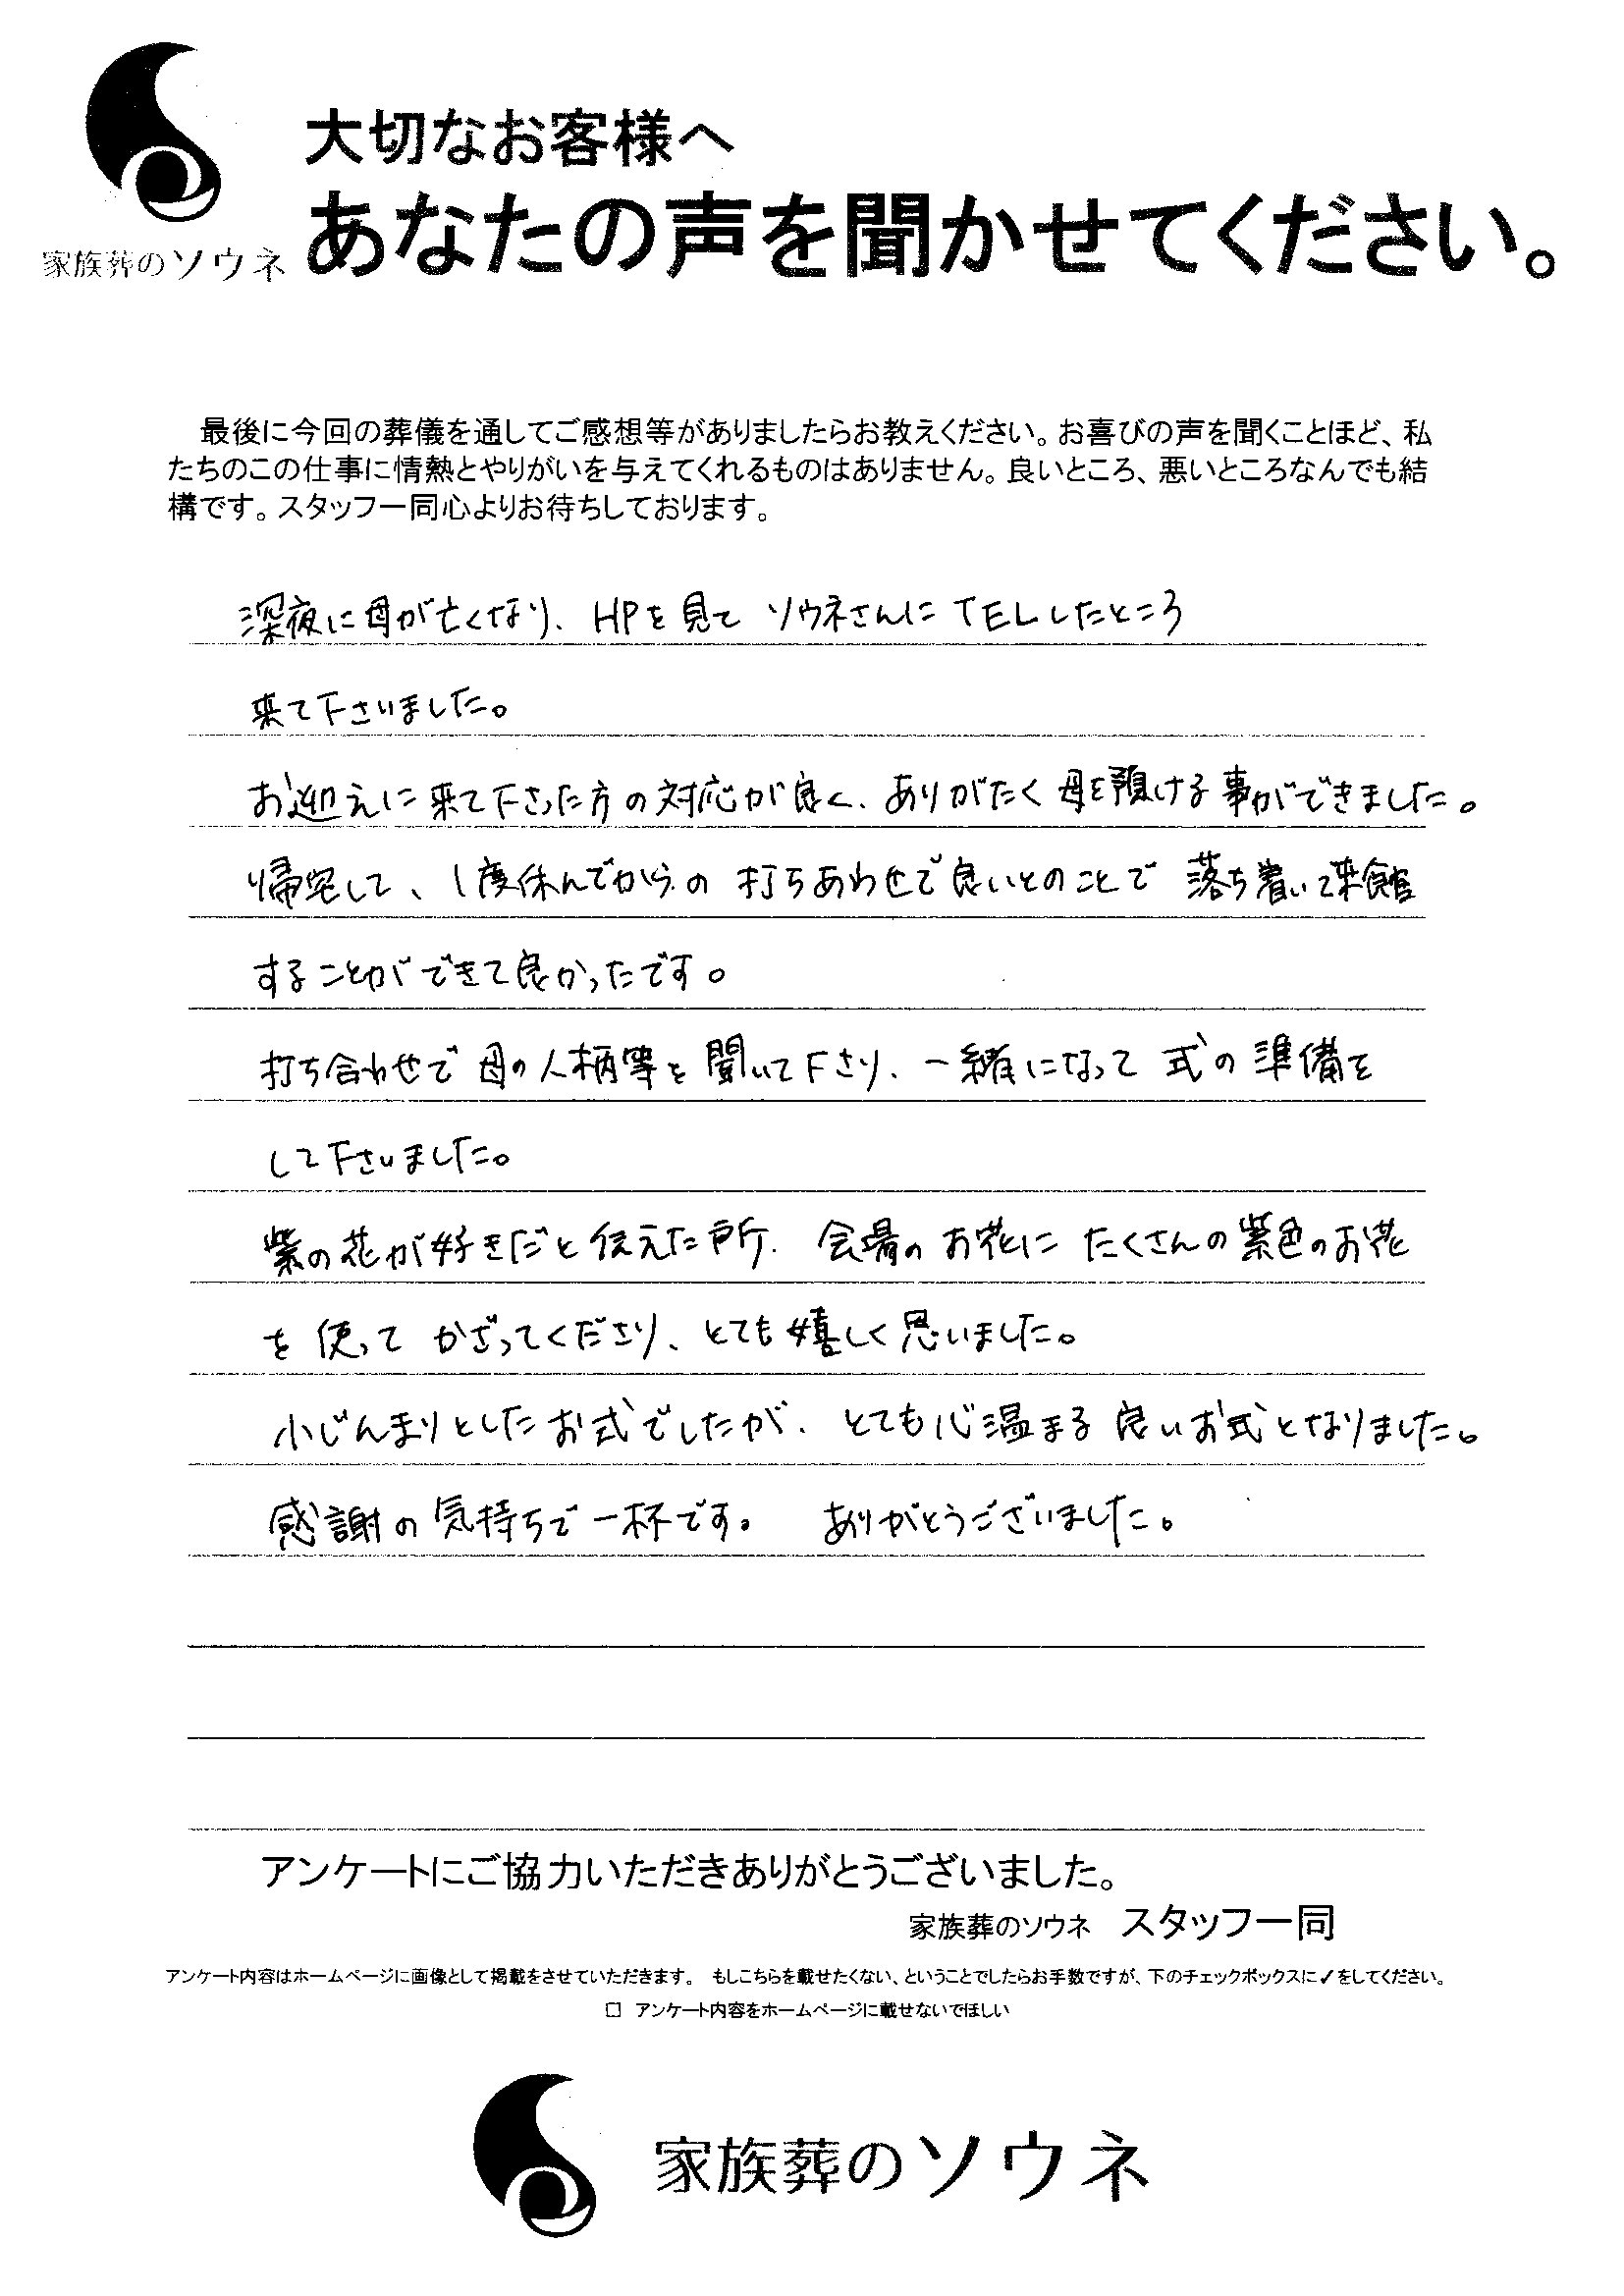 大切なお客様へ
あなたの声を聞かせてください。
家族葬のソウネ
最後に今回の葬儀を通してご感想等がありましたらお教えください。お喜びの声を聞くことほど、私
たちのこの仕事に情熱とやりがいを与えてくれるものはありません。良いところ、悪いところなんでも結
構です。スタッフ一同心よりお待ちしております。
深夜に母が亡くなり、HPを見て ソウネさんに TELしたところ
来て下さいました。
お迎えに来て下さった方の対応が良く、ありがたく母を預ける事ができました。
帰宅して、1度休んでからの 打ちあわせで良いとのことで 落ち着いて来館
することができて良かったです。
打ち合わせで 母の人柄等を 聞いて下さり、一緒になって 式の準備を
して下さいました。
紫の花が好きだと伝えた所、会場の お花に たくさんの紫色のお花
を 使って かざってくださり、とても嬉しく思いました。
小じんまりとしたお式でしたが、とても心温まる 良いお式となりました。
感謝の気持ちで一杯です。 ありがとうございました。
アンケートにご協力いただきありがとうございました。
家族葬のソウネ スタッフ一同
アンケート内容はホームページに画像として掲載をさせていただきます。 もしこちらを載せたくない、ということでしたらお手数ですが、下のチェックボックスに✓をしてください。
□ アンケート内容をホームページに載せないでほしい
家族葬のソウネ